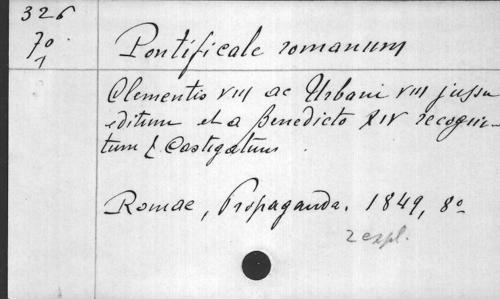 326
70
1
Pontificale romanum
Clementis VIII ac Urbani VIII jussu
editum et a Benedicto XIV recogni-
tum & Castigatum
Romae, Propaganda. 1849, 8o
2 expl.